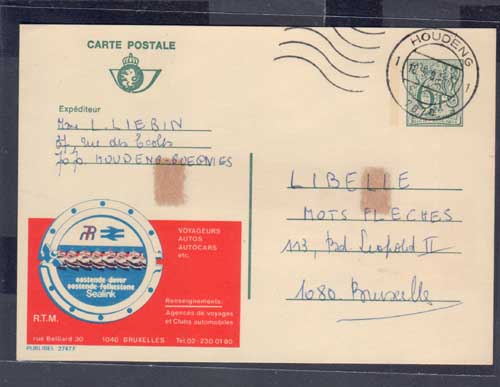 CARTE POSTALE
HOUDENG
1 1
6F
Expéditeur
Mme L. LIEBIN
37, rue des Ecoles
HOUDENG-GOEGNIES
LIBELLE
MOTS FLECHES
113, Bd. Leopold II
1080 Bruxelles
VOYAGEURS
AUTOS
AUTOCARS
etc.
oostende dover
oostende folkestone
Sealink
Renseignements:
Agences de voyages
et Clubs automobiles
R.T.M.
rue Belliard 30 1040 BRUXELLES Tél. 02-230 01 80
PUBLIBEL 2747F